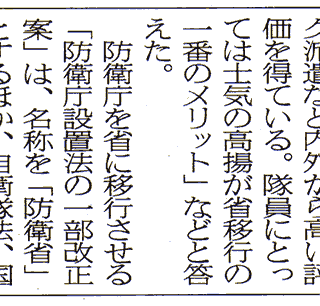 ク派遣など内外から高い評
価を得ている。隊員にとっ
ては士気の高揚が省移行の
一番のメリット」などと答
えた。
防衛庁を省に移行させる
「防衛庁設置法の一部改正
案」は、名称を「防衛省」
とするほか、自衛隊法、国